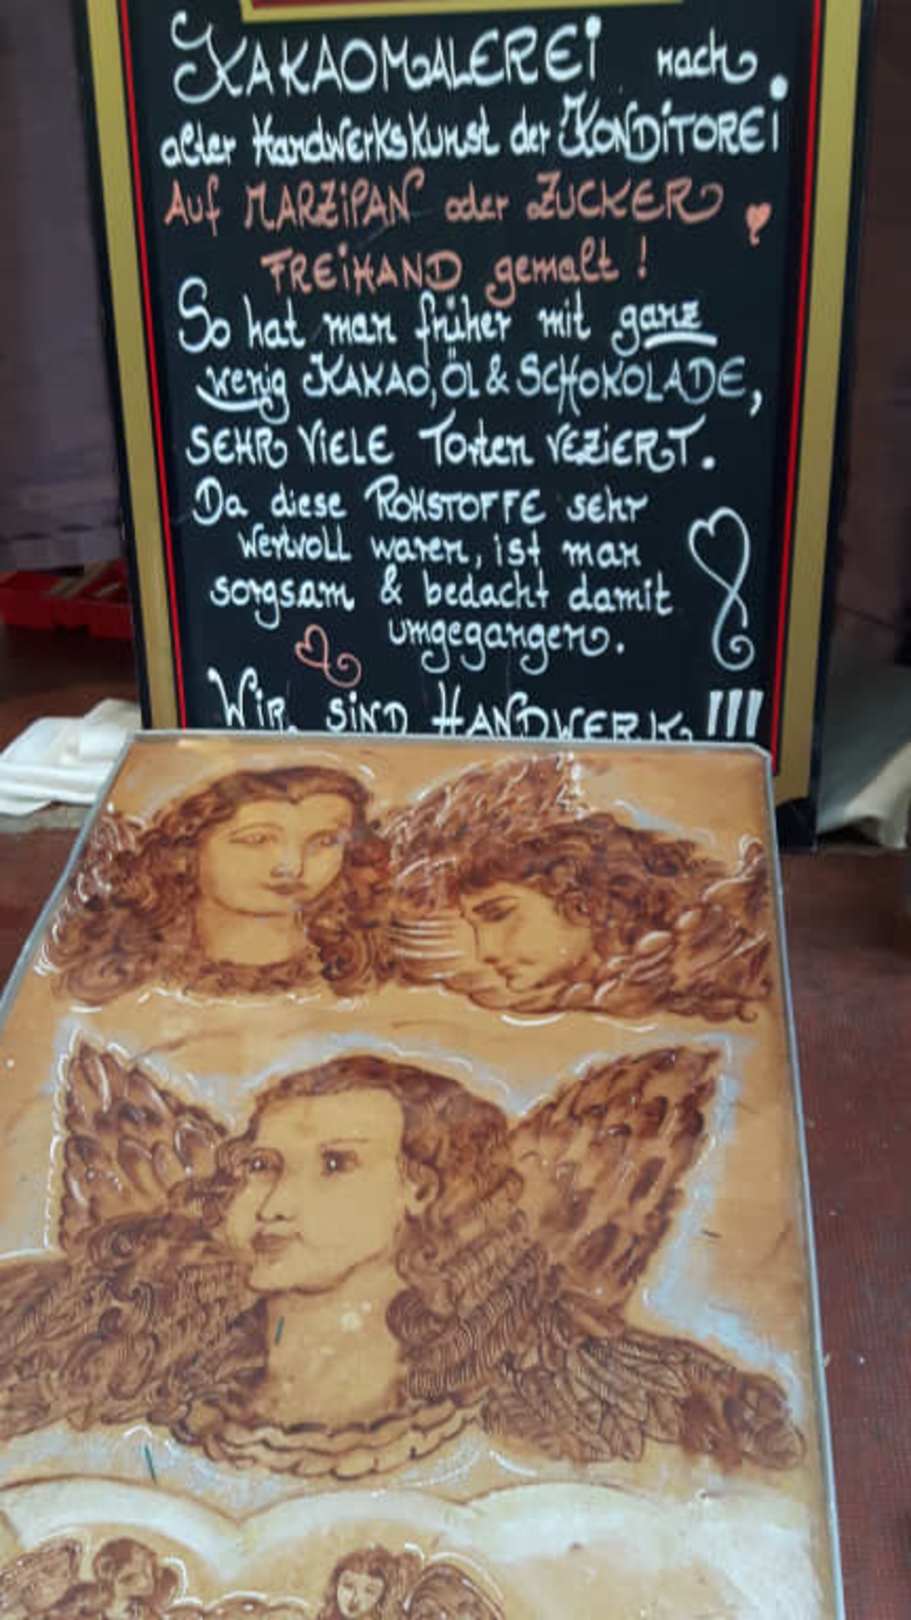 KAKAOMALEREI nach
alter Handwerkskunst der KONDITOREI
Auf MARZIPAN oder ZUCKER
FREIHAND gemalt !
So hat man früher mit ganz
wenig KAKAO, ÖL & SCHOKOLADE,
SEHR VIELE Torten VEZIERT.
Da diese ROHSTOFFE sehr
wertvoll waren, ist man
sorgsam & bedacht damit
umgegangen.
WIR SIND HANDWERK !!!